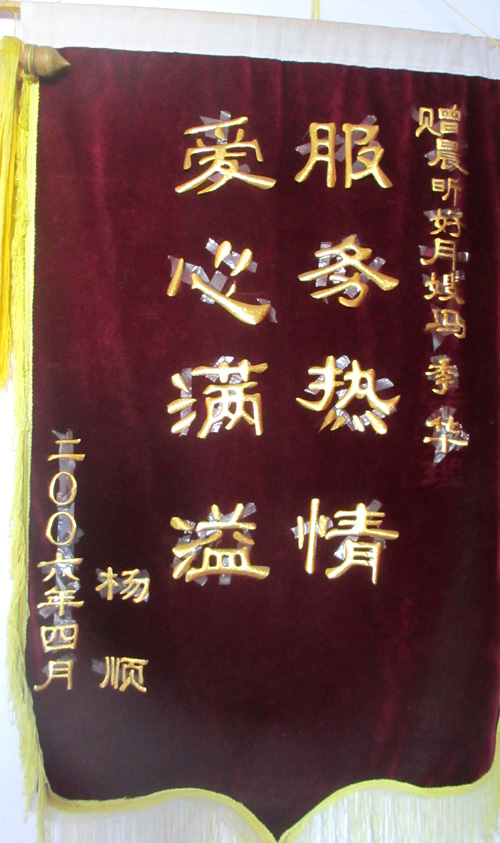 赠晨昕好月嫂冯秀华
服务热情
爱心满溢
杨顺
二〇〇六年四月